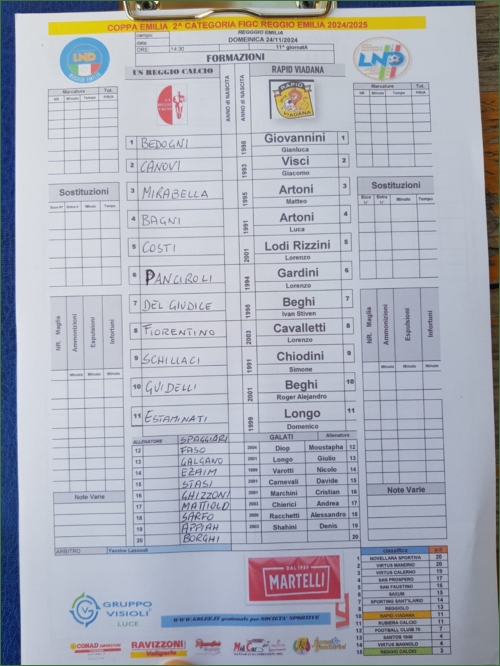 COPPA EMILIA 2^ CATEGORIA FIGC REGGIO EMILIA 2024/2025
campo: REGGGIO EMILIA
data DOMEINICA 24/11/2024
ORE: 14:30 11^ giornatA
FORMAZIONI
US REGGIO CALCIO RAPID VIADANA
ANNO di NASCITA ANNO di NASCITA
LND
RAPID VIADANA
LND
Marcature Tot.
NR. Minuto Tempo
Marcature Tot.
NR. Minuto Tempo
1 BEDOGNI 1998 Giovannini 1
Gianluca
2 CANOVI 1993 Visci 2
Giacomo
3 MIRABELLA 1995 Artoni 3
Matteo
4 BAGNI 1991 Artoni 4
Luca
5 COSTI 2001 Lodi Rizzini 5
Lorenzo
6 PANCIROLI 1994 Gardini 6
Lorenzo
7 DEL GIUDICE 1996 Beghi 7
Ivan Stiven
8 FIORENTINO 2003 Cavalletti 8
Lorenzo
9 SCHILLACI Chiodini 9
Simone
10 GUIDELLI Beghi 10
Roger Alejandro
11 ESTAMINATI 1999 Longo 11
Domenico
Sostituzioni
Minuto Tempo
Sostituzioni
Minuto Tempo
NR. Maglia Ammonizioni Espulsioni Infortuni
Minuto Minuto Minuto
NR. Maglia Ammonizioni Espulsioni Infortuni
Minuto Minuto Minuto
ALLENATORE SPAGGIARI GALATI Allenatore
12 FASO 2004 Diop Moustapha 12
13 GALGANO 2001 Longo Giulio 13
14 EZAIM 1999 Varotti Nicole 14
15 STASI 2001 Carnevali Davide 15
16 GHIZZONI 2001 Marchini Cristian 16
17 MATTIOLO 2003 Chierici Andrea 17
18 SARFO Racchetti Alessandro 18
19 APPIAH 2003 Shahini Denis 19
20 BORGHI 20
Note Varie
Note Varie
ARBITRO
DAL 1959
MARTELLI
GRUPPO VISIOLI
LUCE
WWW.GSLZE.IT gestionale per SOCIETA' SPORTIVE
CONAD RAVIZZONI
classifica
NOVELLARA SPORTIVA 20
VIRTUS MANDRIO 20
VIRTUS CALERNO 19
SAN PROSPERO 17
SAN FAUSTINO
SAXUM
SPORTING SANT'ILARIO
REGGIOLO
RAPID VIADANA 11
RUBIERA CALCIO
FOOTBALL CLUB 70
SANTOS 1948
VIRTUS BAGNOLO
REGGIO CALCIO